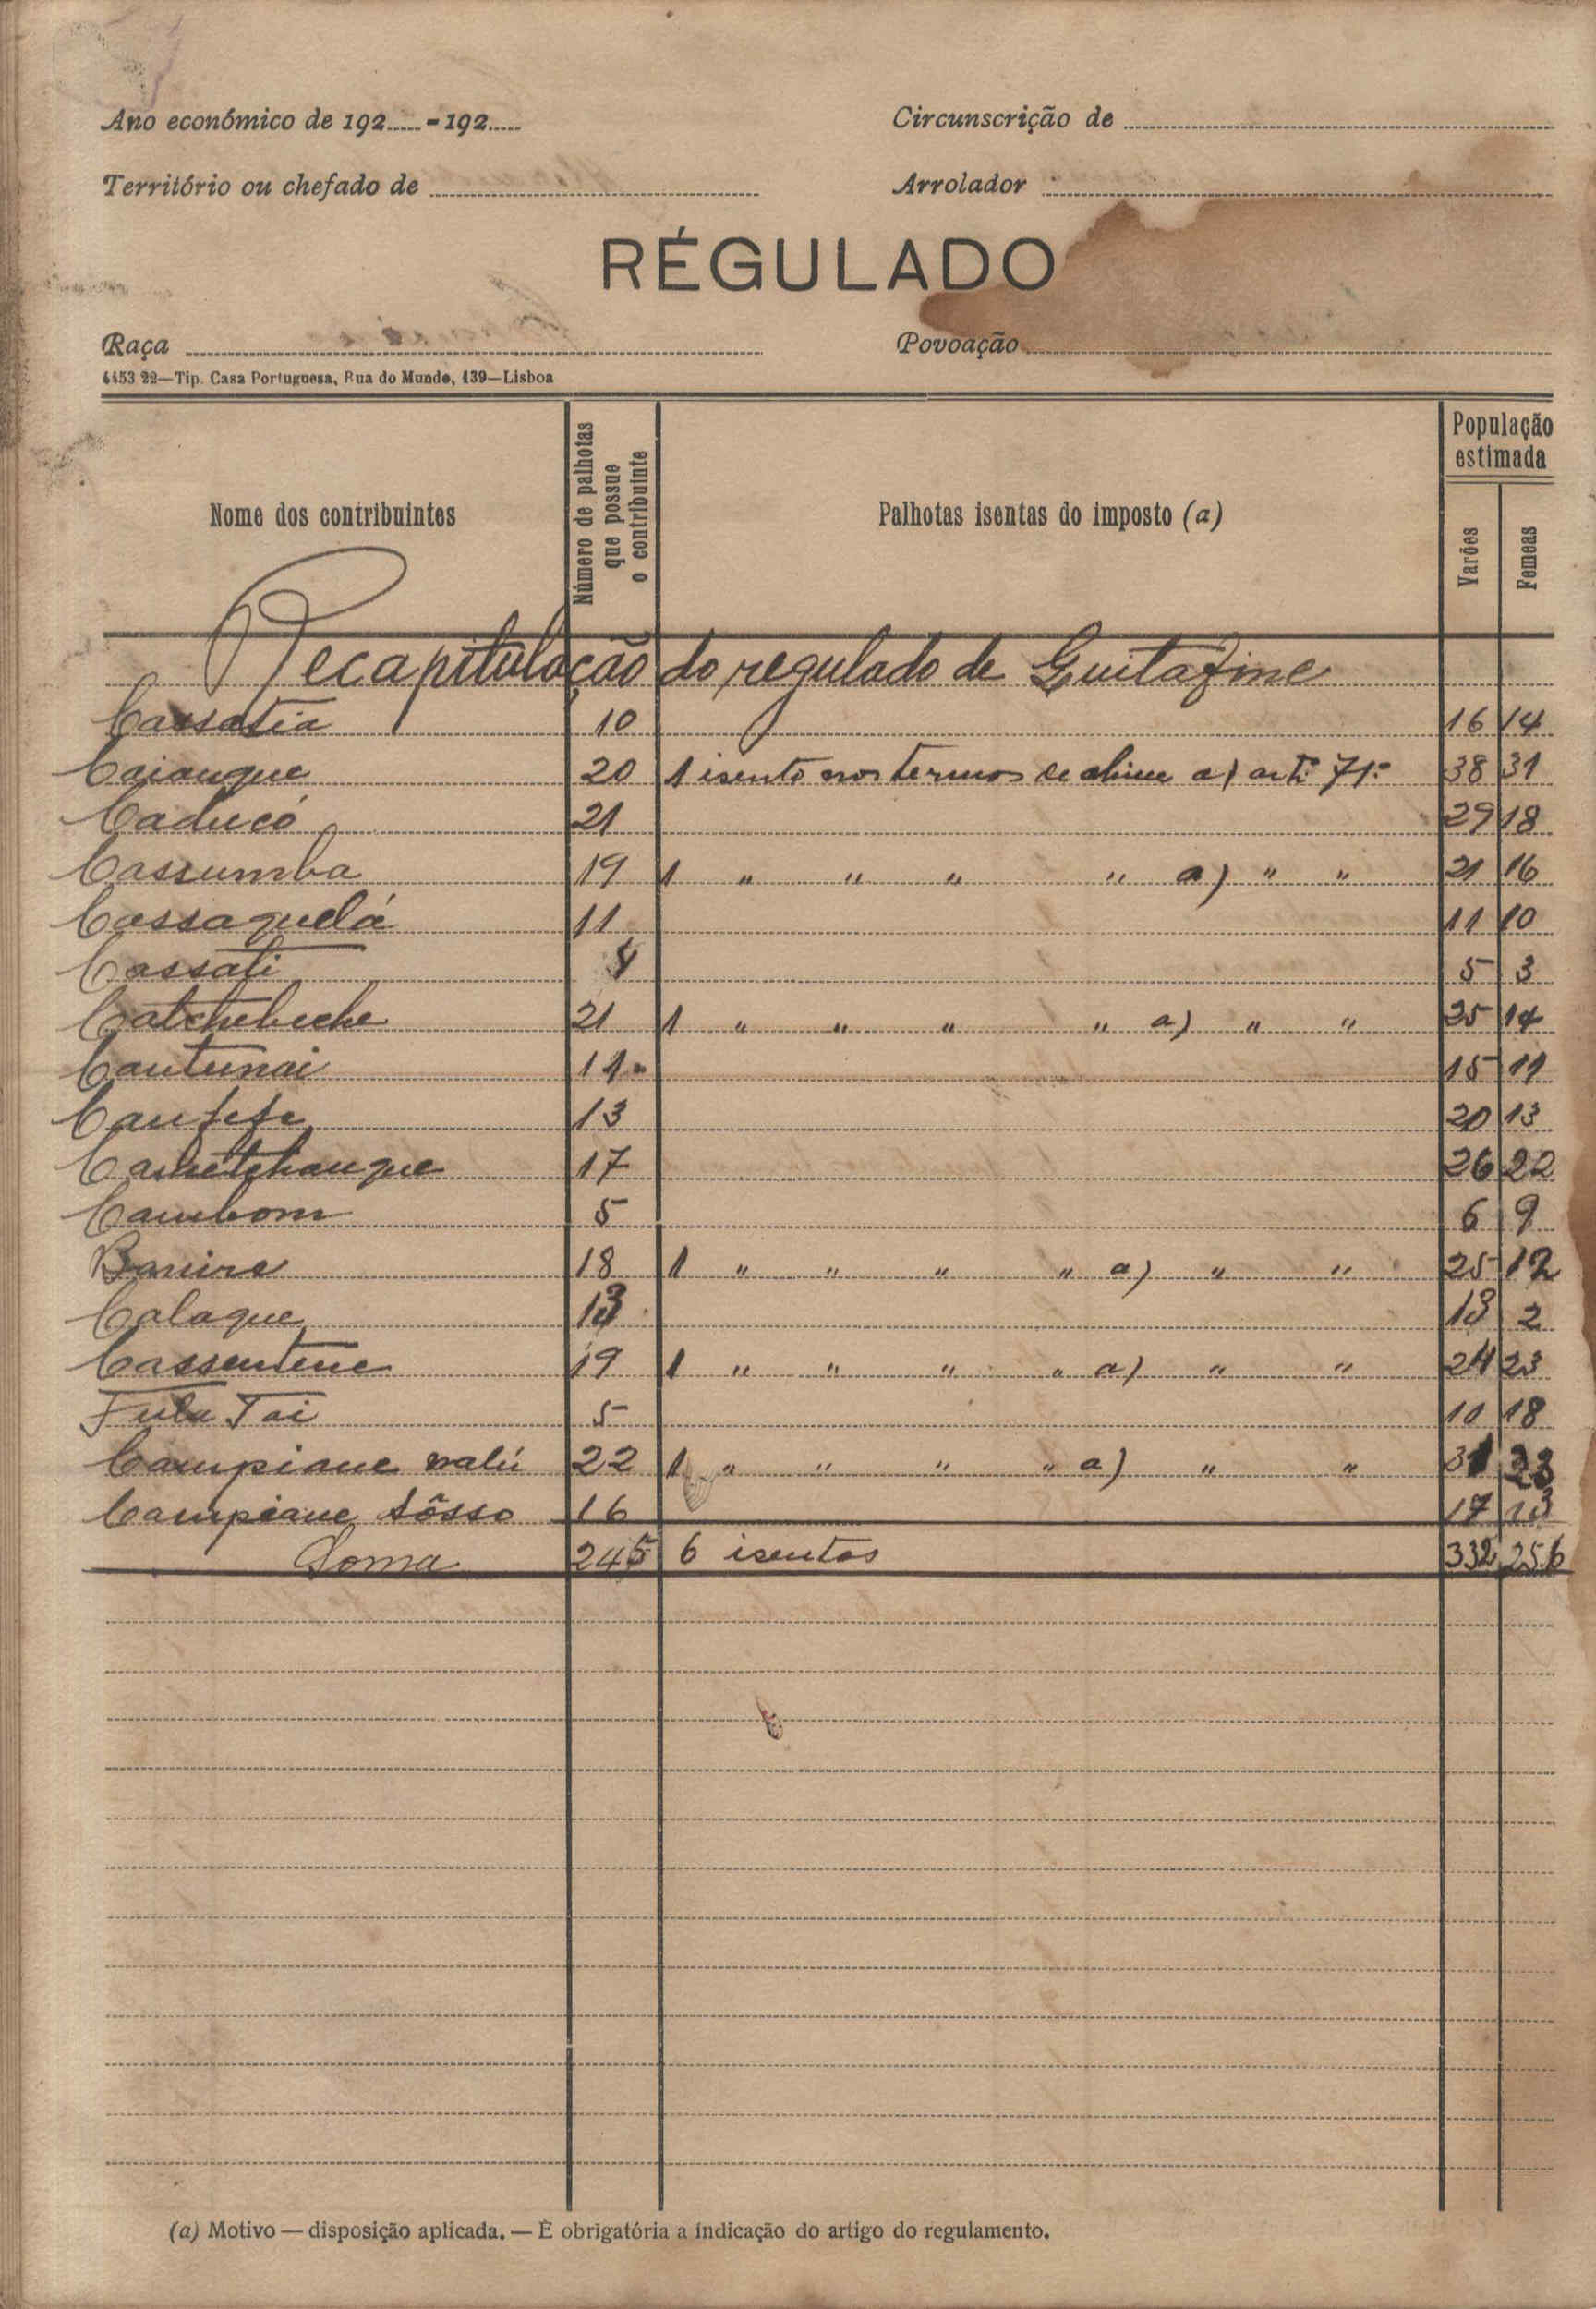 Ano económico de 192..... - 192.....
Circunscrição de
Território ou chefado de
Arrolador
RÉGULADO
Raça
Povoação
4453 22—Tip. Casa Portuguesa, Rua do Mundo, 139—Lisboa
Nome dos contribuintes
Número de palhotas que possue o contribuinte
Palhotas isentas do imposto (a)
População estimada
Varões
Femeas
Recapitulação do regulado de Guitafine
Cassatia 10 16 14
Caianque 20 1 isento nos termos de alinea a) artº 71º 38 31
Caducó 21 29 18
Cassumba 19 1 " " " " a) " " 21 16
Cassaquelá 11 11 10
Cassati 4 5 3
Catchebeche 21 1 " " " " a) " " 25 14
Cautunai 11 15 11
Caufefe 13 20 13
17 26 22
Cambom 5 6 9
Banire 18 1 " " " " a) " " 25 12
Calaque 13 13 2
Cassentene 19 1 " " " " a) " " 24 23
Fula Tai 5 10 18
Campiane nalú 22 1 " " " " a) " " 31 23
Campiane Sôsso 16 17 13
Soma 245 6 isentos 332 256
(a) Motivo — disposição aplicada. — É obrigatória a indicação do artigo do regulamento.